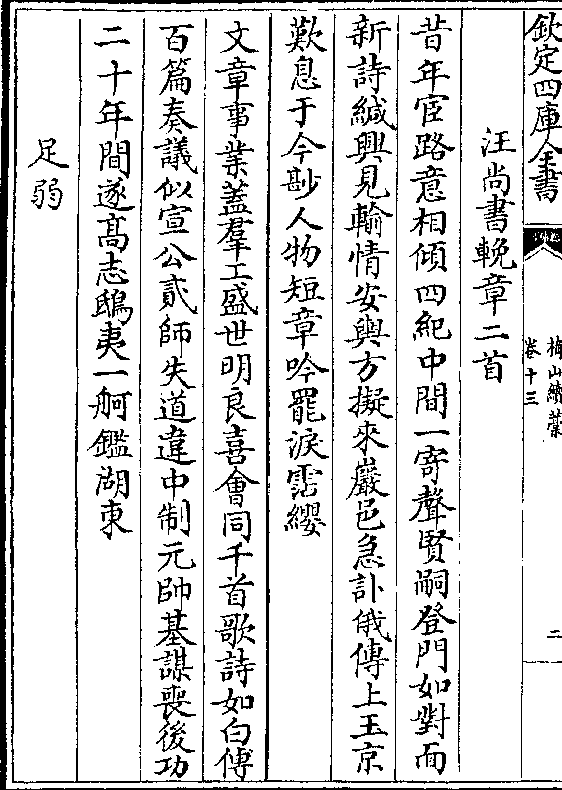 欽定四庫全書
梅山續藁
卷十三
二
汪尚書輓章二首
昔年宦路意相傾四紀中間一寄聲賢嗣登門如對面
新詩緘興見輸情安輿方擬來巖邑急訃俄傳上玉京
歎息于今尠人物短章吟罷淚霑纓
文章事業蓋羣工盛世明良喜會同千首歌詩如白傅
百篇奏議似宣公貳師失道違中制元帥基謀喪後功
二十年間遂髙志鴟夷一舸鑑湖東
足弱